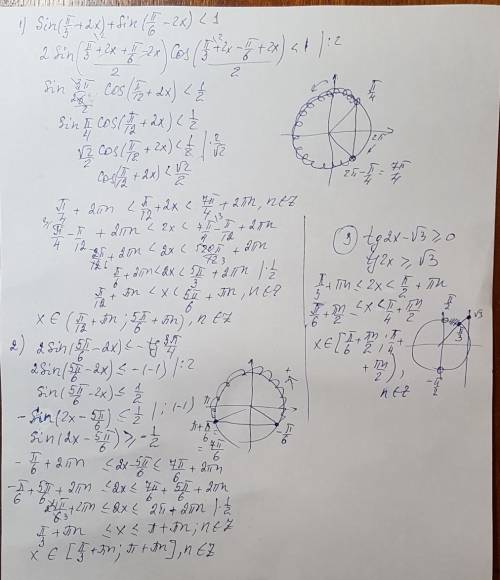 1) Sin(π/3+2x)+Sin(π/6-2x)<1
2Sin((π/3+2x+π/6-2x)/2)Cos((π/3+2x-π/6+2x)/2)<1 |:2
Cos(π/12+2x)<1/2
Sin π/4 cos(π/12+2x)<1/2
√2/2 cos(π/12+2x)<1/2 |:2/√2
cos(π/12+2x)<√2/2
π/4+2πn<π/12+2x<7π/4+2πn, n∈Z
π/4-π/12+2πn<2x<7π/4-π/12+2πn
2π/12+2πn<2x<20π/12+2πn
π/6+2πn<2x<5π/3+2πn |·1/2
π/12+πn<x<5π/6+πn, n∈Z
x∈(π/12+πn; 5π/6+πn), n∈Z
π/4
2π
2π-π/4=7π/4
2) 2Sin(5π/6-2x)≤-tg 3π/4
2Sin(5π/6-2x)≤-(-1) |:2
Sin(5π/6-2x)≤1/2
-Sin(2x-5π/6)≤1/2 |:(-1)
Sin(2x-5π/6)≥-1/2
-π/6+2πn≤2x-5π/6≤7π/6+2πn
-π/6+5π/6+2πn≤2x≤7π/6+5π/6+2πn
+2πn≤2x≤2π+2πn |·1/2
π/3+πn≤x≤π+πn, n∈Z
x∈[π/3+πn; π+πn], n∈Z
π
π+π/6=7π/6
-π/6
+
3) tg2x-√3≥0
tg2x≥√3
π/3+πn≤2x<π/2+πn
π/6+πn/2≤x<π/4+πn/2
x∈[π/6+πn/2; π/4
+πn/2),
n∈Z
π/2
√3
π/3
-π/2